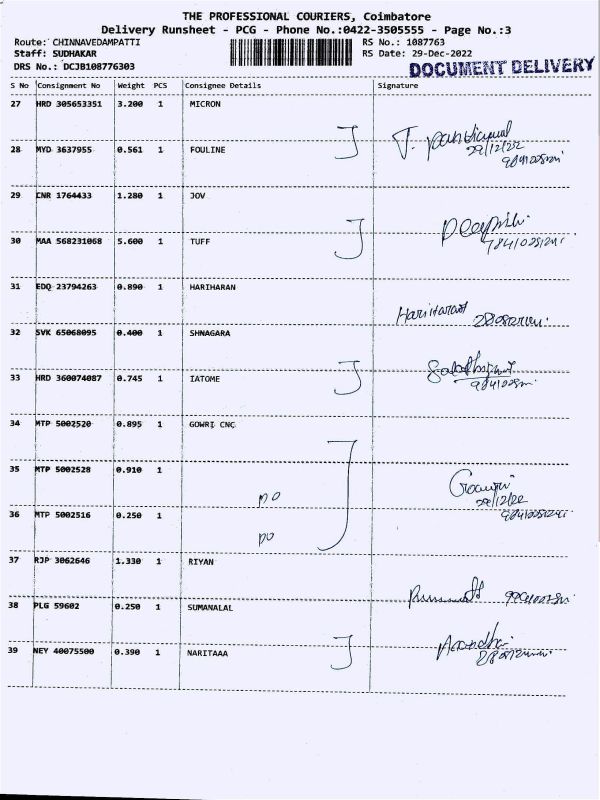 THE PROFESSIONAL COURIERS, Coimbatore
Delivery Runsheet - PCG - Phone No.:0422-3505555 - Page No.:3
Route: CHINNAVEDAMPATTI RS No.: 1087763
Staff: SUDHAKAR RS Date: 29-Dec-2022
DRS No.: DCJB108776303 DOCUMENT DELIVERY
S No Consignment No Weight PCS Consignee Details Signature
27 HRD 305653351 3.200 1 MICRON
28 MYD 3637955 0.561 1 FOULINE
29/12/22
29 CNR 1764433 1.280 1 JOV
30 MAA 568231068 5.600 1 TUFF
31 EDQ 23794263 0.890 1 HARIHARAN
Hariharan
32 SVK 65068095 0.400 1 SHNAGARA
33 HRD 360074087 0.745 1 IATOME
34 MTP 5002520 0.895 1 GOWRI CNC
35 MTP 5002528 0.910 1
Gowri
29/12/22
36 MTP 5002516 0.250 1
37 RJP 3062646 1.330 1 RIYAN
38 PLG 59602 0.250 1 SUMANALAL
39 NEY 40075500 0.390 1 NARITAAA